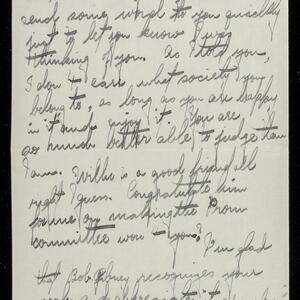 send some word to you quickly
just to let you know I was
thinking of you. As I told you,
I don't care what society you
belong to, as long as you are happy
in it and enjoy it. You are
so much better able to judge than
I am. Willis is a good friend all
right I guess. Congratulate him
for me on making the Prom
committee won't you? I'm glad
that Bob recognizes your